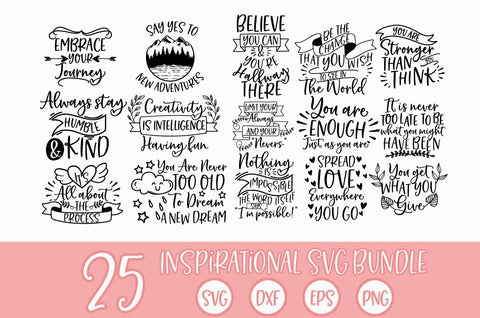 EMBRACE
YOUR
Journey
SAY YES TO
NEW ADVENTURES
BELIEVE
YOU CAN
&
YOU'RE
Halfway
THERE
BE THE
CHANGE
THAT YOU WISH
TO SEE IN
The World
YOU ARE
Stronger
THAN YOU
THINK
Always stay
HUMBLE
& KIND
Creativity
IS INTELLIGENCE
Having fun
LIMIT YOUR
Always
AND YOUR
Nevers
You are
ENOUGH
Just as you are
It is never
TOO LATE TO BE
what you might
HAVE BEEN
All about
THE
PROCESS
You Are Never
TOO OLD
To Dream
A NEW DREAM
Nothing
IS
IMPOSSIBLE
THE WORD ITSELF
SAYS
I'm possible!
SPREAD
LOVE
Everywhere
YOU GO
You get
WHAT YOU
Give
25 INSPIRATIONAL SVG BUNDLE
SVG DXF EPS PNG